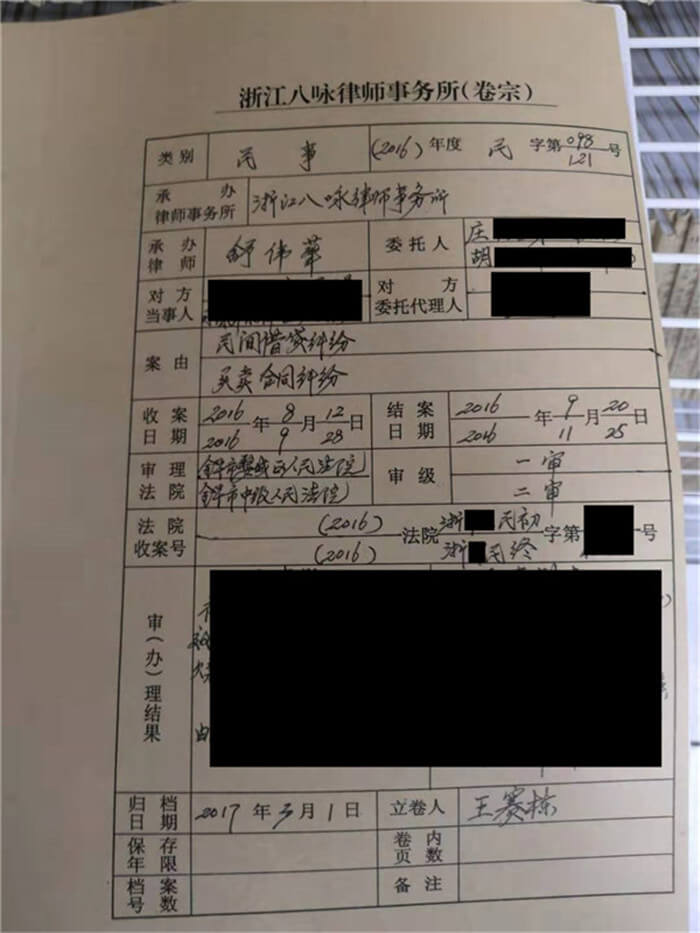 浙江八咏律师事务所(卷宗)
类别 民事 (2016)年度 民 字第 098 号
121
承办律师事务所 浙江八咏律师事务所
承办律师 舒伟华 委托人 庄
胡
对方当事人 对方委托代理人
案由 民间借贷纠纷
买卖合同纠纷
收案日期 2016年8月12日 结案日期 2016年9月20日
2016 9 28 2016 11 25
审理法院 金华市婺城区人民法院 审级 一审
金华市中级人民法院 二审
法院收案号 (2016) 法院 浙 民初 字第 号
(2016) 浙 民终
审(办)理结果
归档日期 2017年3月1日 立卷人 王赛栋
保存年限 卷内页数
档案号数 备注